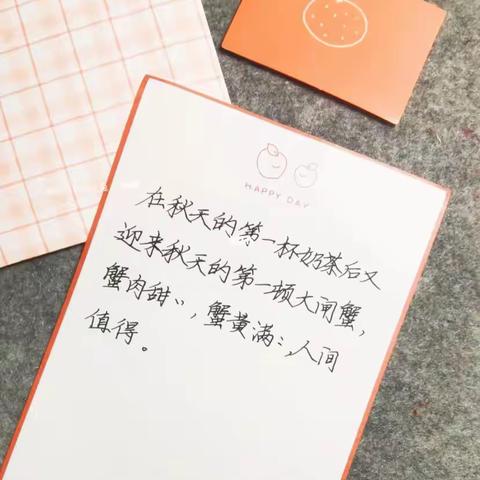 HAPPY DAY
在秋天的第一杯奶茶后又
迎来秋天的第一顿大闸蟹,
蟹肉甜〃,蟹黄满〻,人间
值得。